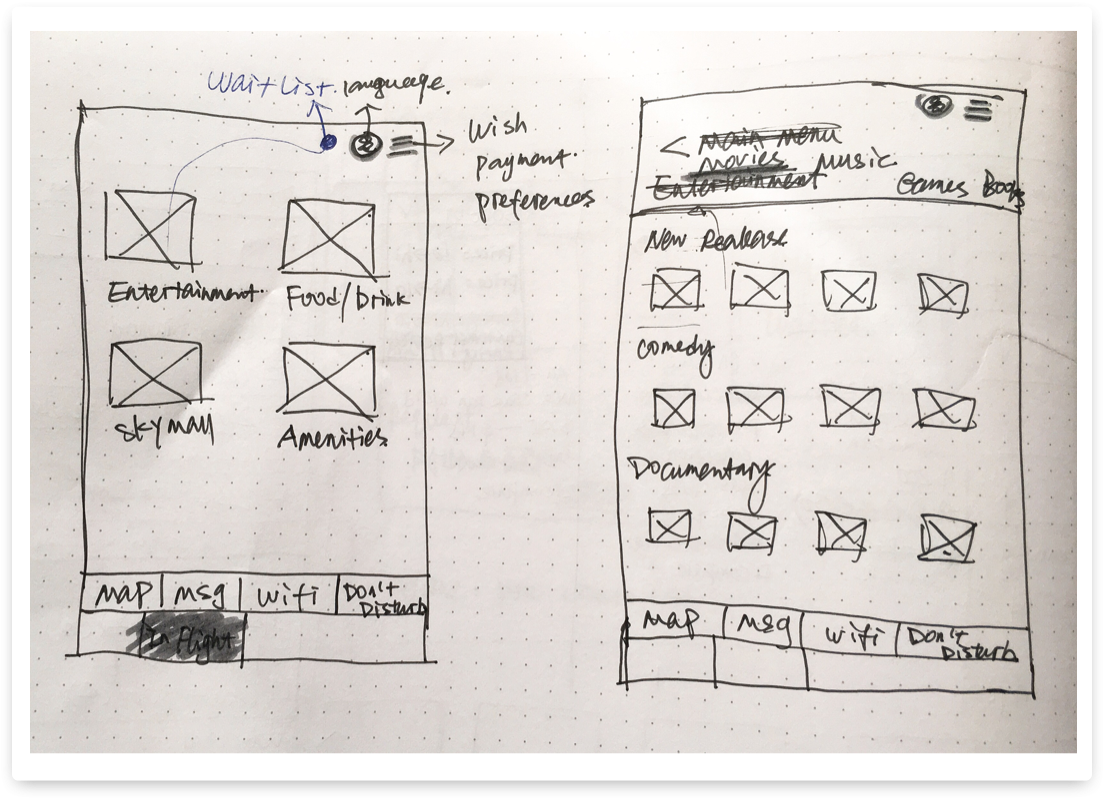 Waitlist language.
Wish
payment.
preferences
Entertainment.
Food/Drink
Skymall
Amenities
map msg wifi Don't Disturb
In Flight
< Main Menu
movies music.
Entertainment Games Books
New Realease
comedy
Documentary
map msg wifi Don't Disturb